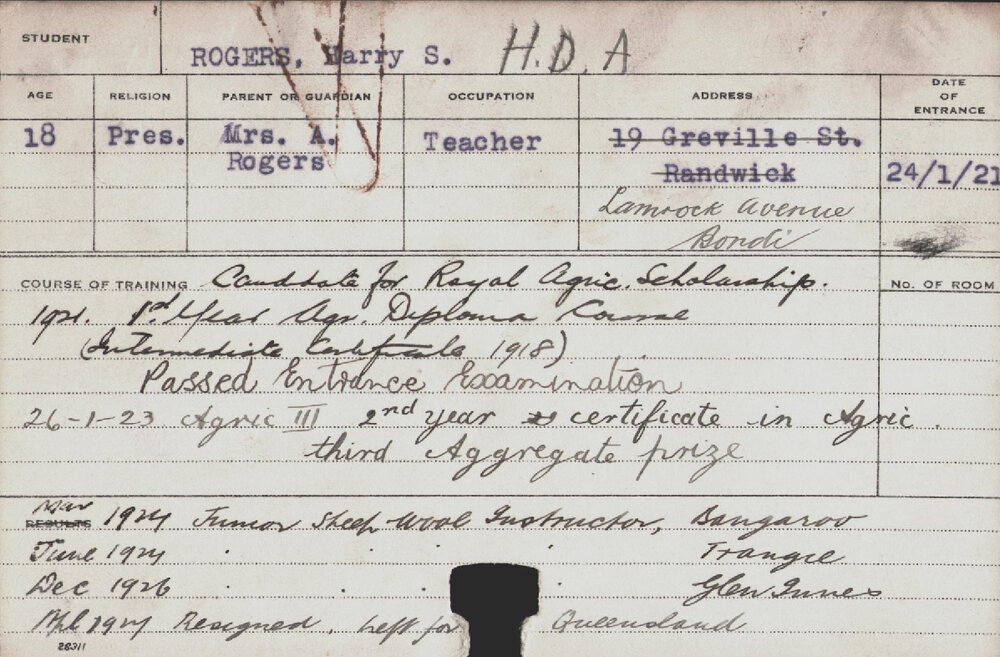 STUDENT ROGERS, Harry S. H.D.A
AGE RELIGION PARENT OR GUARDIAN OCCUPATION ADDRESS DATE OF ENTRANCE
18 Pres. Mrs. A. Teacher 19 Greville St.
Rogers Randwick 24/1/21
Lamrock Avenue
Bondi
COURSE OF TRAINING Canddate for Royal Agric. Scholarship. No. OF ROOM
1921. 1st Year Agr. Diploma Course
(Intermediate Certificate 1918)
Passed Entrance Examination
26-1-23 Agric III 2nd year certificate in Agric.
third Aggregate prize
RESULTS Mar 1924 Junior Sheep Wool Instructor, Bangaroo
June 1924 . . . . Trangie
Dec 1926 . . . . Glen Innes
Apl 1927 Resigned, left for Queensland
28311